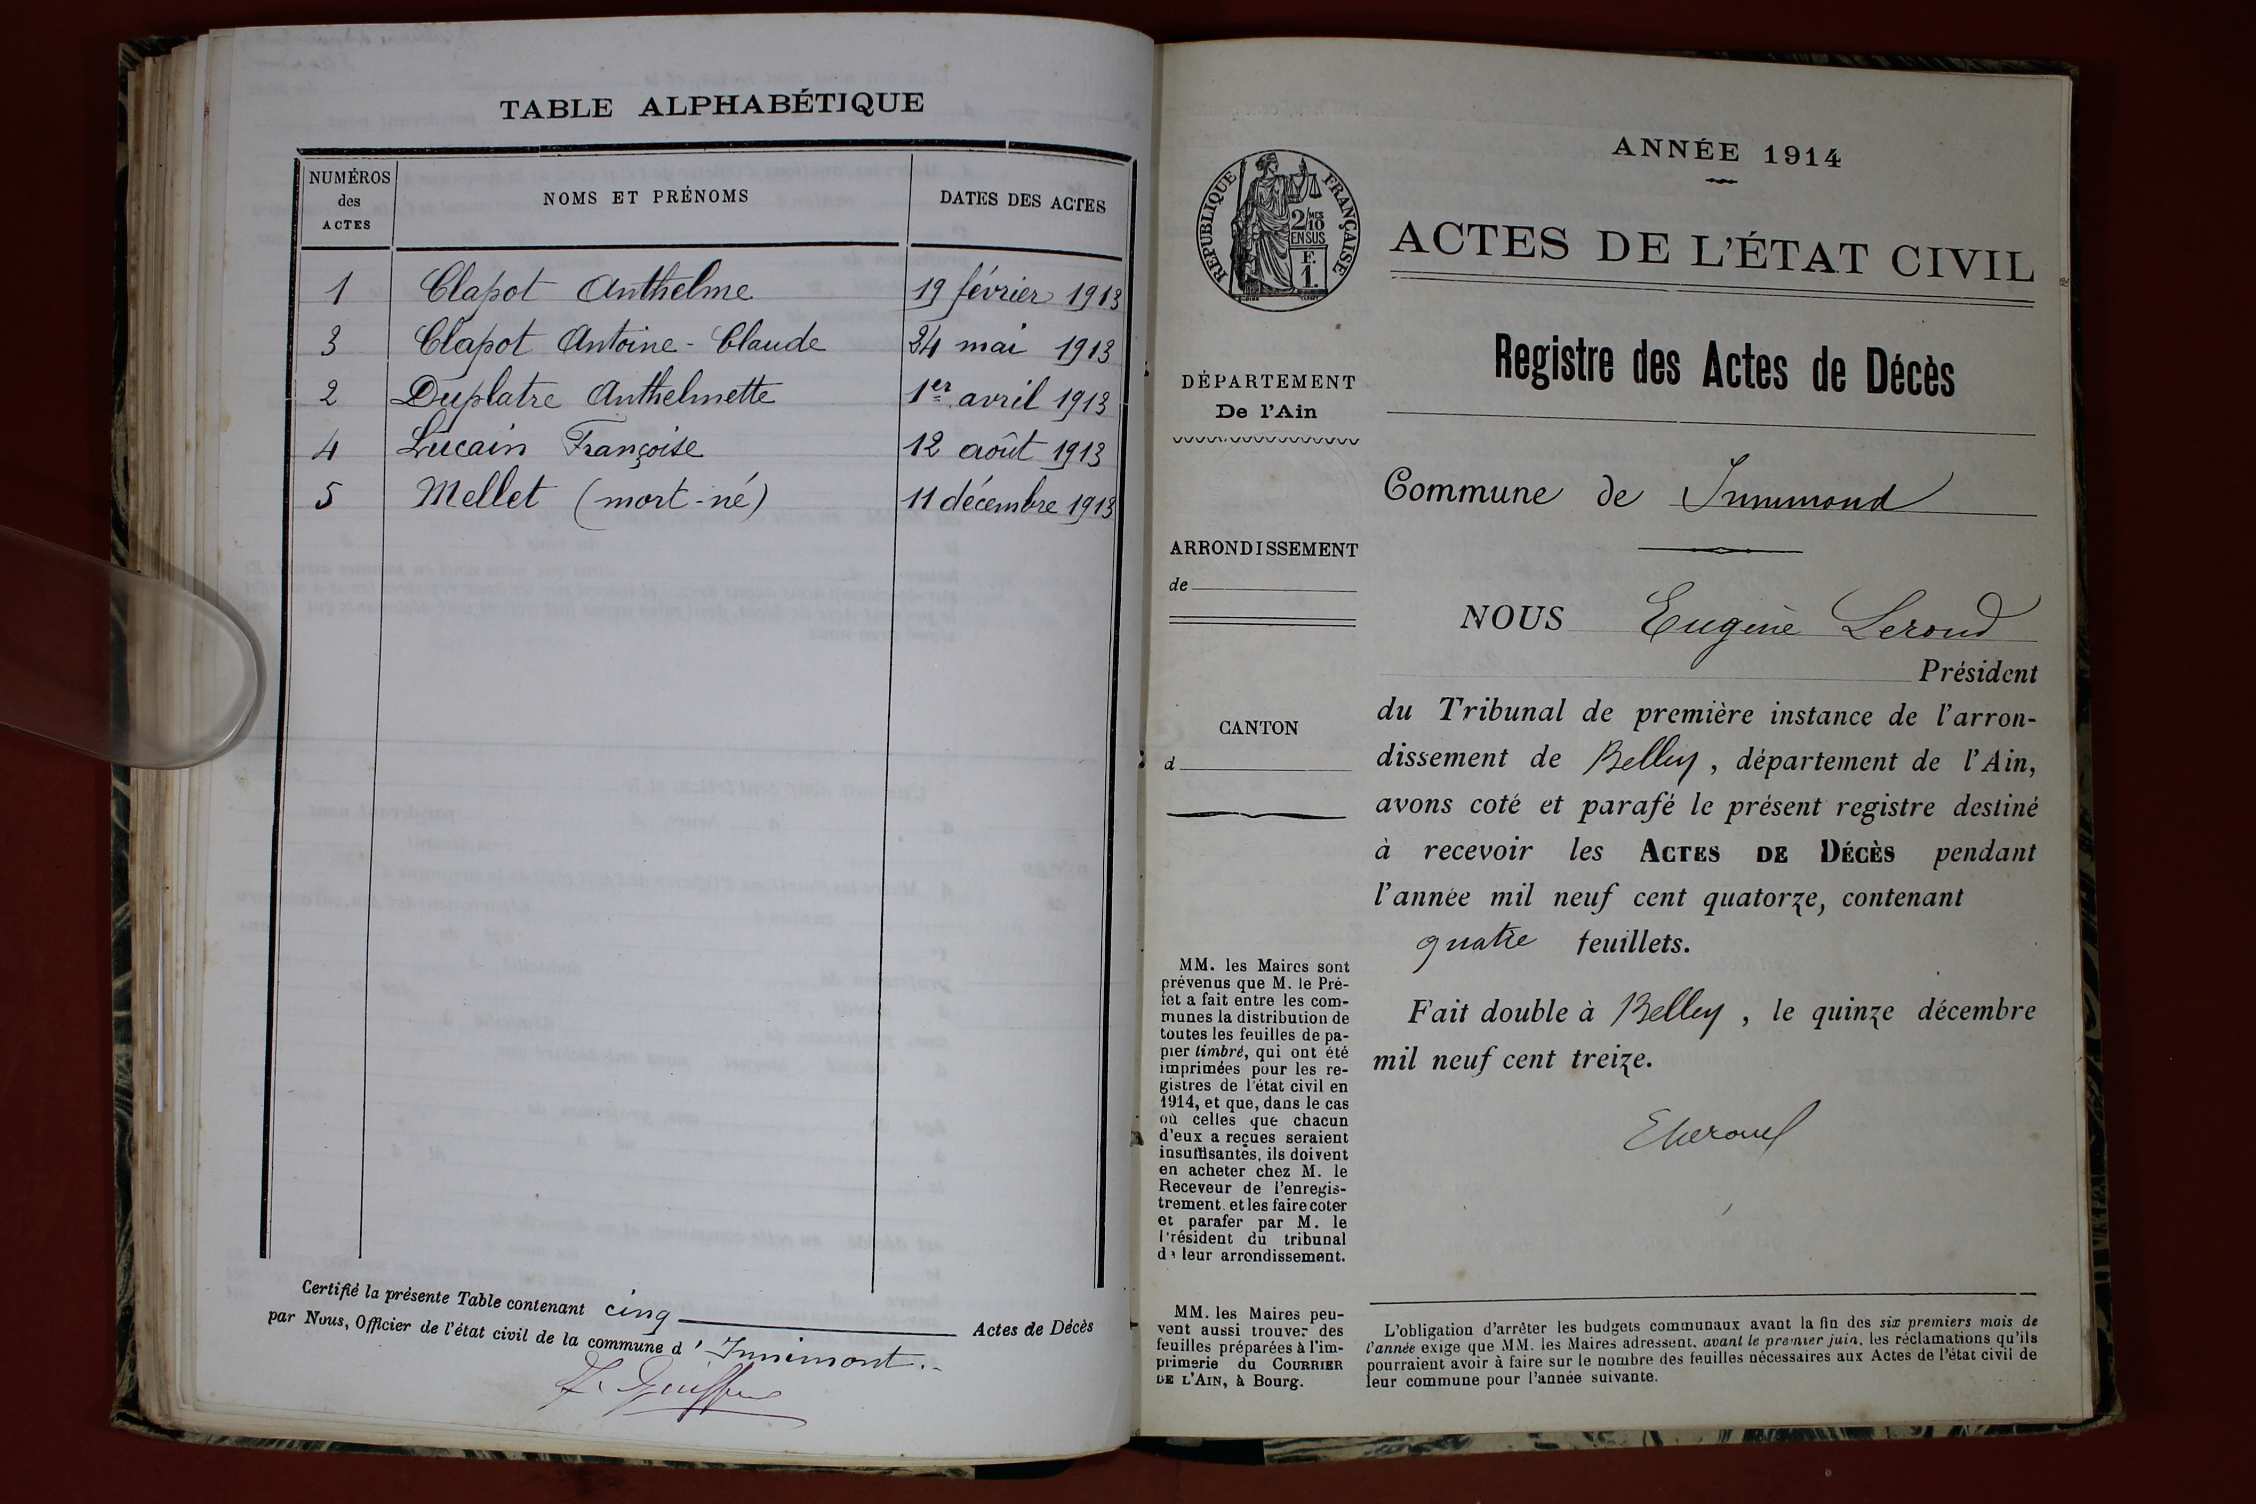 TABLE ALPHABÉTIQUE
NUMÉROS
des
ACTES
NOMS ET PRÉNOMS
DATES DES ACTES
1 Clapot Anthelme 19 février 1913
3 Clapot Antoine-Claude 24 mai 1913
2 Duplatre Anthelmette 1er avril 1913
4 Lucain Françoise 12 août 1913
5 Mellet (mort-né) 11 décembre 1913
Certifié la présente Table contenant cinq Actes de Décès
par Nous, Officier de l'état civil de la commune d'Innimont.
ANNÉE 1914
RÉPUBLIQUE FRANÇAISE
2/10 MES
EN SUS
F.
1.
ACTES DE L'ÉTAT CIVIL
Registre des Actes de Décès
DÉPARTEMENT
De l'Ain
Commune de Innimond
ARRONDISSEMENT
de
NOUS Eugène Leroud
Président
du Tribunal de première instance de l'arron-
dissement de Belley, département de l'Ain,
avons coté et parafé le présent registre destiné
à recevoir les ACTES DE DÉCÈS pendant
l'année mil neuf cent quatorze, contenant
quatre feuillets.
Fait double à Belley, le quinze décembre
mil neuf cent treize.
CANTON
d
MM. les Maires sont
prévenus que M. le Pré-
fet a fait entre les com-
munes la distribution de
toutes les feuilles de pa-
pier timbré, qui ont été
imprimées pour les re-
gistres de l'état civil en
1914, et que, dans le cas
où celles que chacun
d'eux a reçues seraient
insuffisantes, ils doivent
en acheter chez M. le
Receveur de l'enregis-
trement et les faire coter
et parafer par M. le
Président du tribunal
de leur arrondissement.
MM. les Maires peu-
vent aussi trouver des
feuilles préparées à l'im-
primerie du COURRIER
DE L'AIN, à Bourg.
L'obligation d'arrêter les budgets communaux avant la fin des six premiers mois de
l'année exige que MM. les Maires adressent, avant le premier juin, les réclamations qu'ils
pourraient avoir à faire sur le nombre des feuilles nécessaires aux Actes de l'état civil de
leur commune pour l'année suivante.